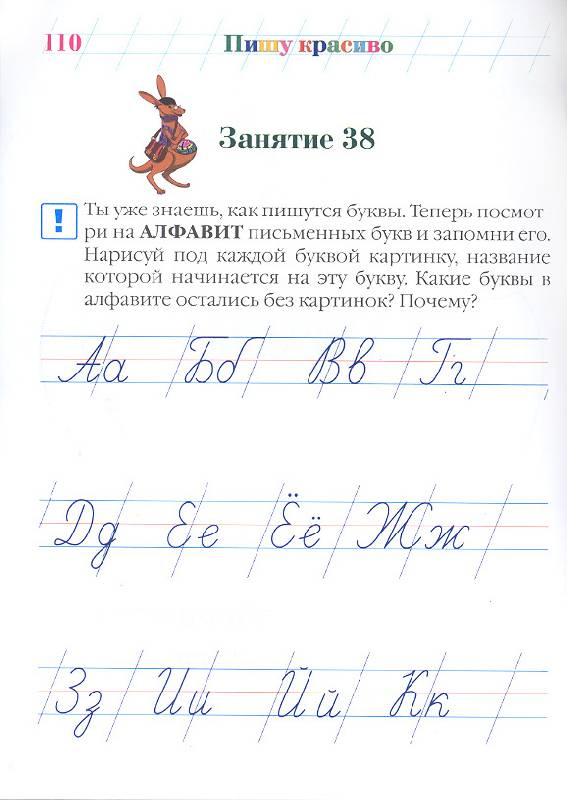 110 Пишу красиво
Занятие 38
! Ты уже знаешь, как пишутся буквы. Теперь посмот
ри на АЛФАВИТ письменных букв и запомни его.
Нарисуй под каждой буквой картинку, название
которой начинается на эту букву. Какие буквы в
алфавите остались без картинок? Почему?
Аа Бб Вв Гг
Дд Ее Ёё Жж
Зз Ии Йй Кк